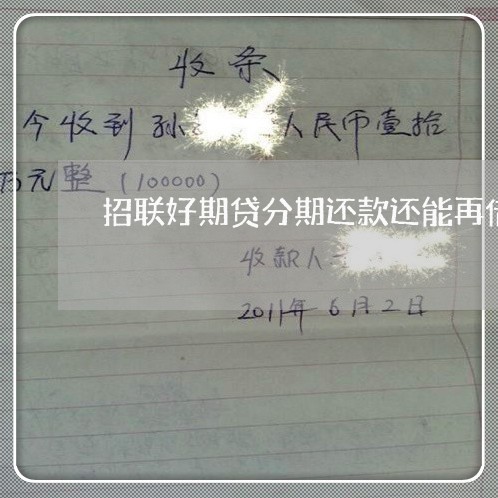 收条
今收到孙人民币壹拾
万元整(100000)
招联好期贷分期还款还能再借
收款人
2011年6月2日